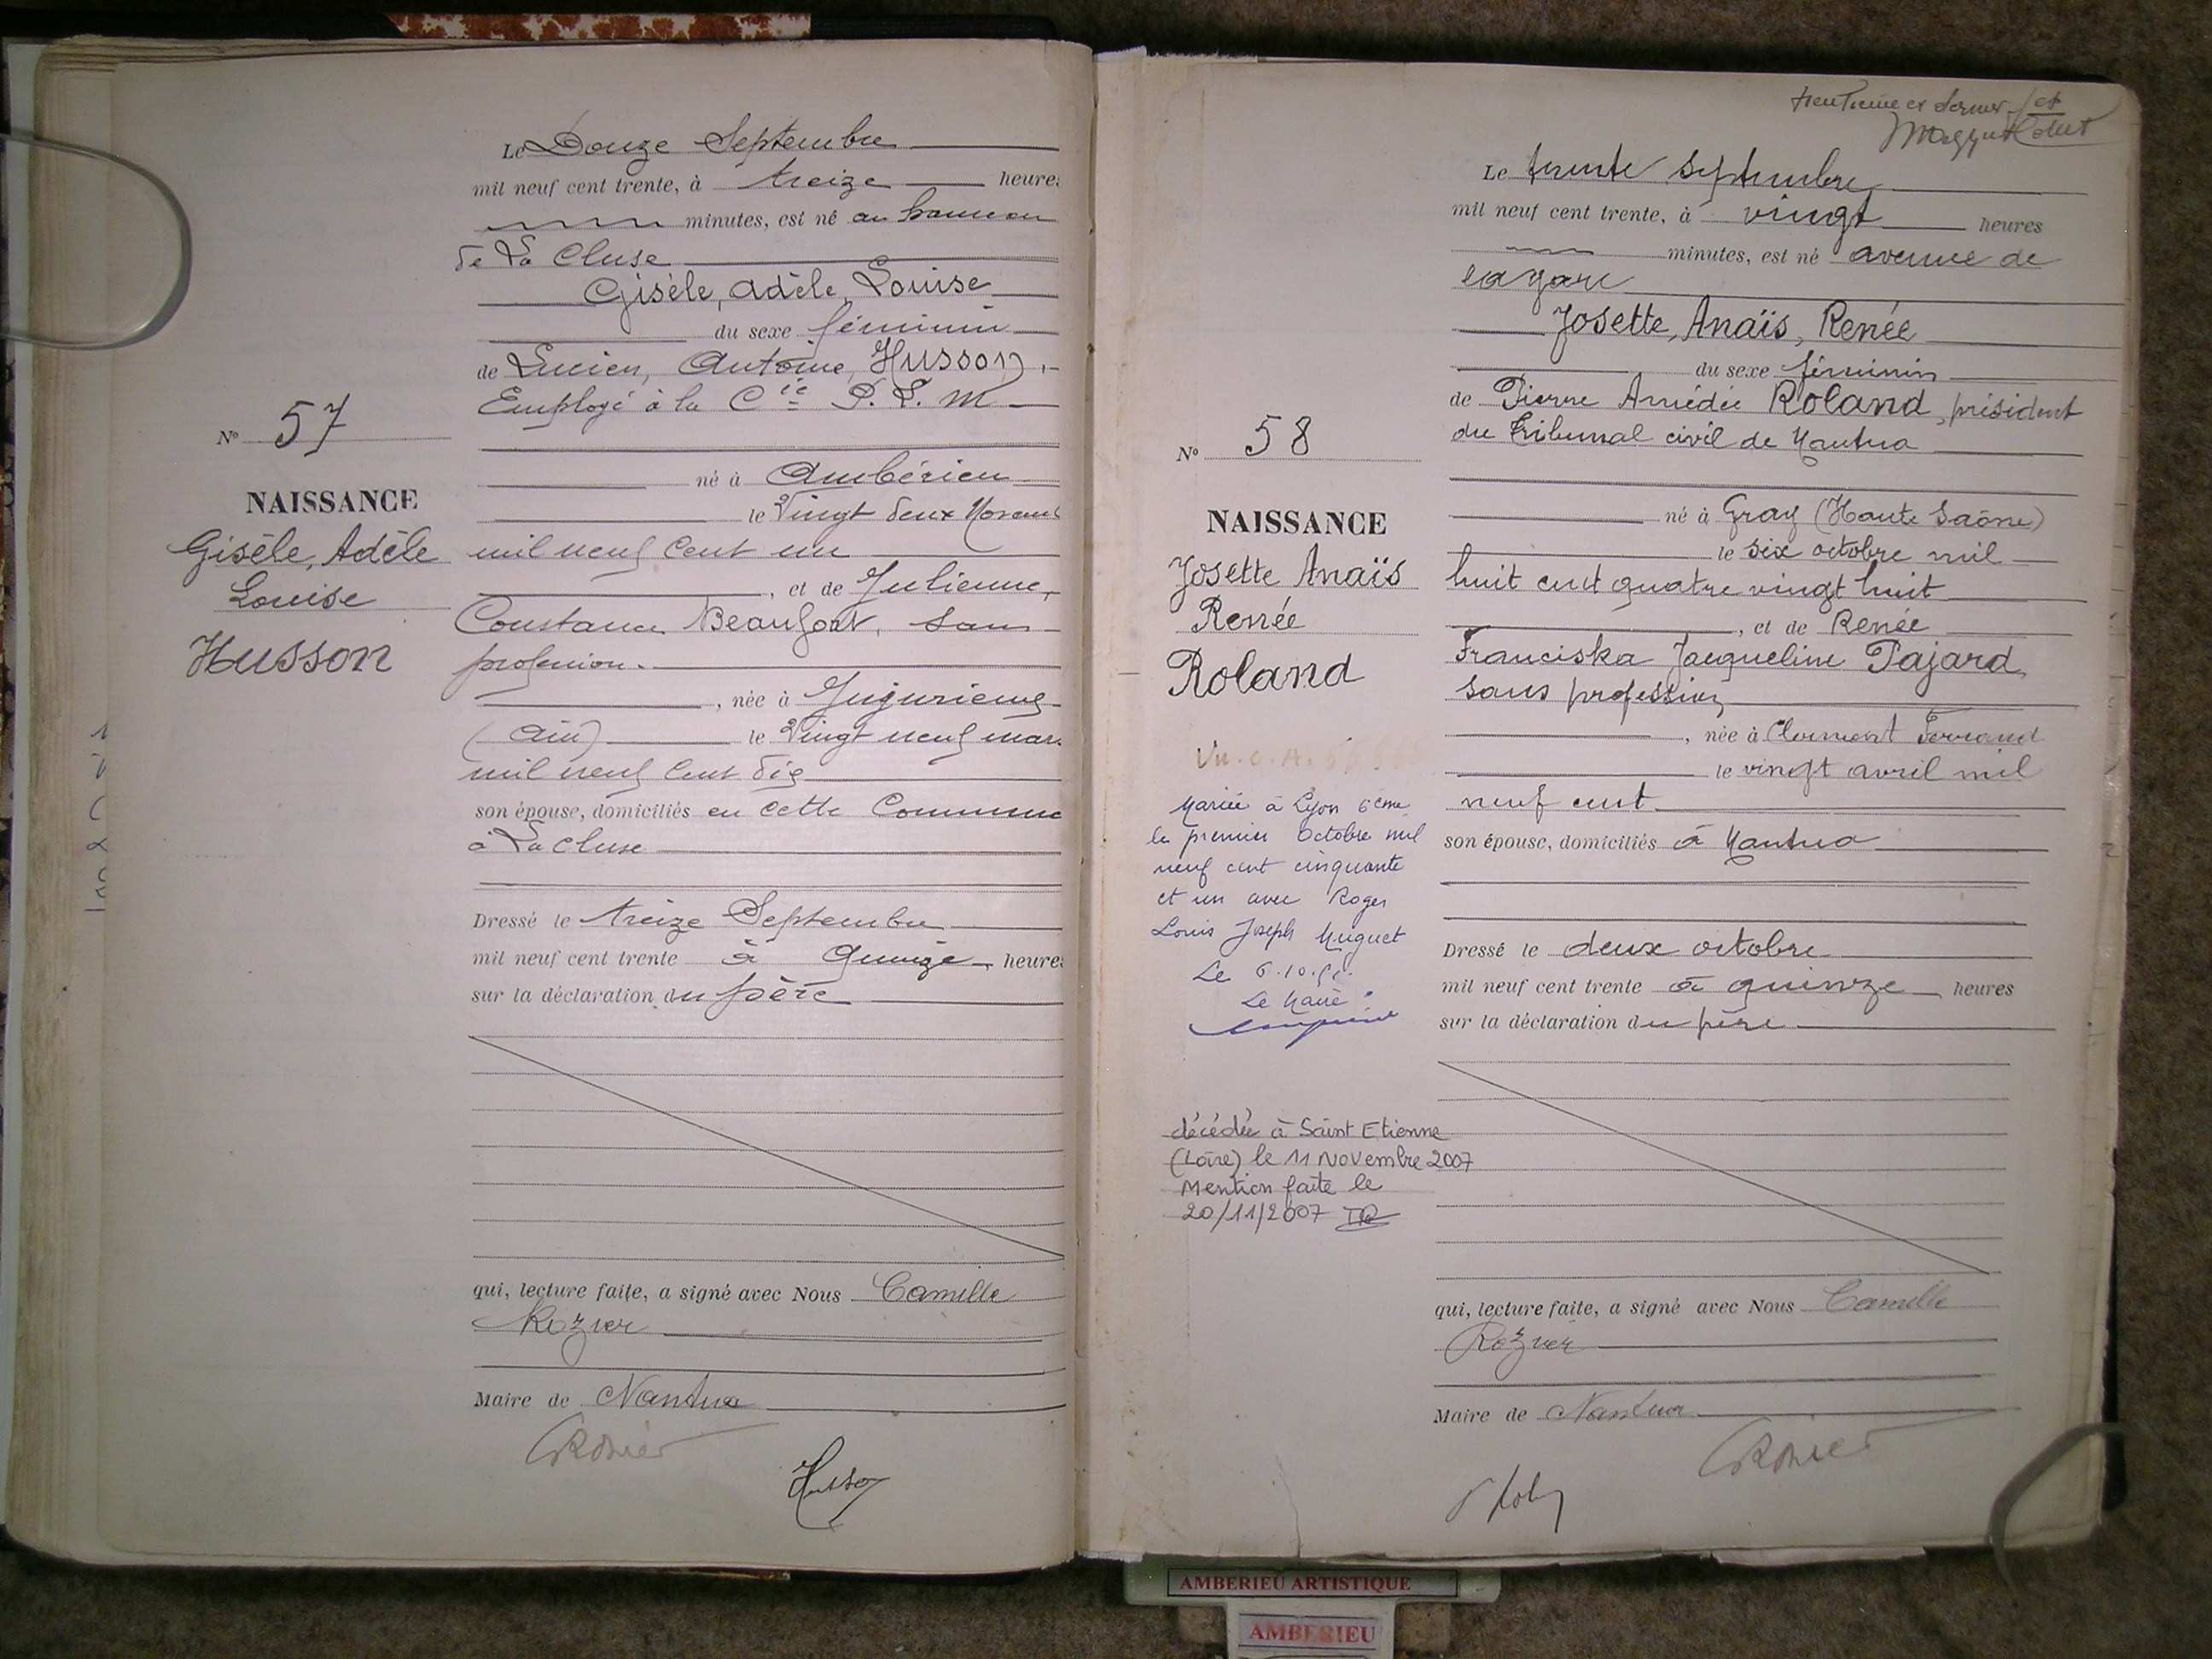 Le Douze Septembre
mil neuf cent trente, à treize heures
minutes, est né au hameau
de La Cluse
Gisèle, Adèle, Louise
du sexe féminin
de Lucien, Antoine, Husson,
Employé à la Cie P. L. M
né à Ambérieu
le Vingt deux Novemb
mil neuf cent un
, et de Julienne,
Constance Beaufort, sans
profession.
, née à Jujurieux
(Ain) le Vingt neuf mars
mil neuf cent dix
son épouse, domiciliés en cette Commune
à La Cluse
Dressé le treize Septembre
mil neuf cent trente à Quinze heures
sur la déclaration du père
qui, lecture faite, a signé avec Nous Camille
Rozier
Maire de Nantua
CRozier
Husson
N° 57
NAISSANCE
Gisèle, Adèle
Louise
Husson
trentième et dernier
Le trente Septembre
mil neuf cent trente, à vingt heures
minutes, est né avenue de
la gare
Josette, Anaïs, Renée
du sexe féminin
de Pierre Amédée Roland, président
du Tribunal civil de Nantua
né à Gray (Haute Saône)
le six octobre mil
huit cent quatre vingt huit
, et de Renée
Franciska Jacqueline Pajard,
sans profession
, née à Clermont Ferrand
le vingt avril mil
neuf cent
son épouse, domiciliés à Nantua
Dressé le deux octobre
mil neuf cent trente à quinze heures
sur la déclaration du père
qui, lecture faite, a signé avec Nous Camille
Rozier
Maire de Nantua
CRozier
N° 58
NAISSANCE
Josette Anaïs
Renée
Roland
Mariée à Lyon 6ème
le premier Octobre mil
neuf cent cinquante
et un avec Roger
Louis Joseph Muguet
Le 6.10.51.
Le Maire
décédée à Saint Etienne
(Loire) le 11 Novembre 2007
Mention faite le
20/11/2007
AMBERIEU ARTISTIQUE
AMBERIEU